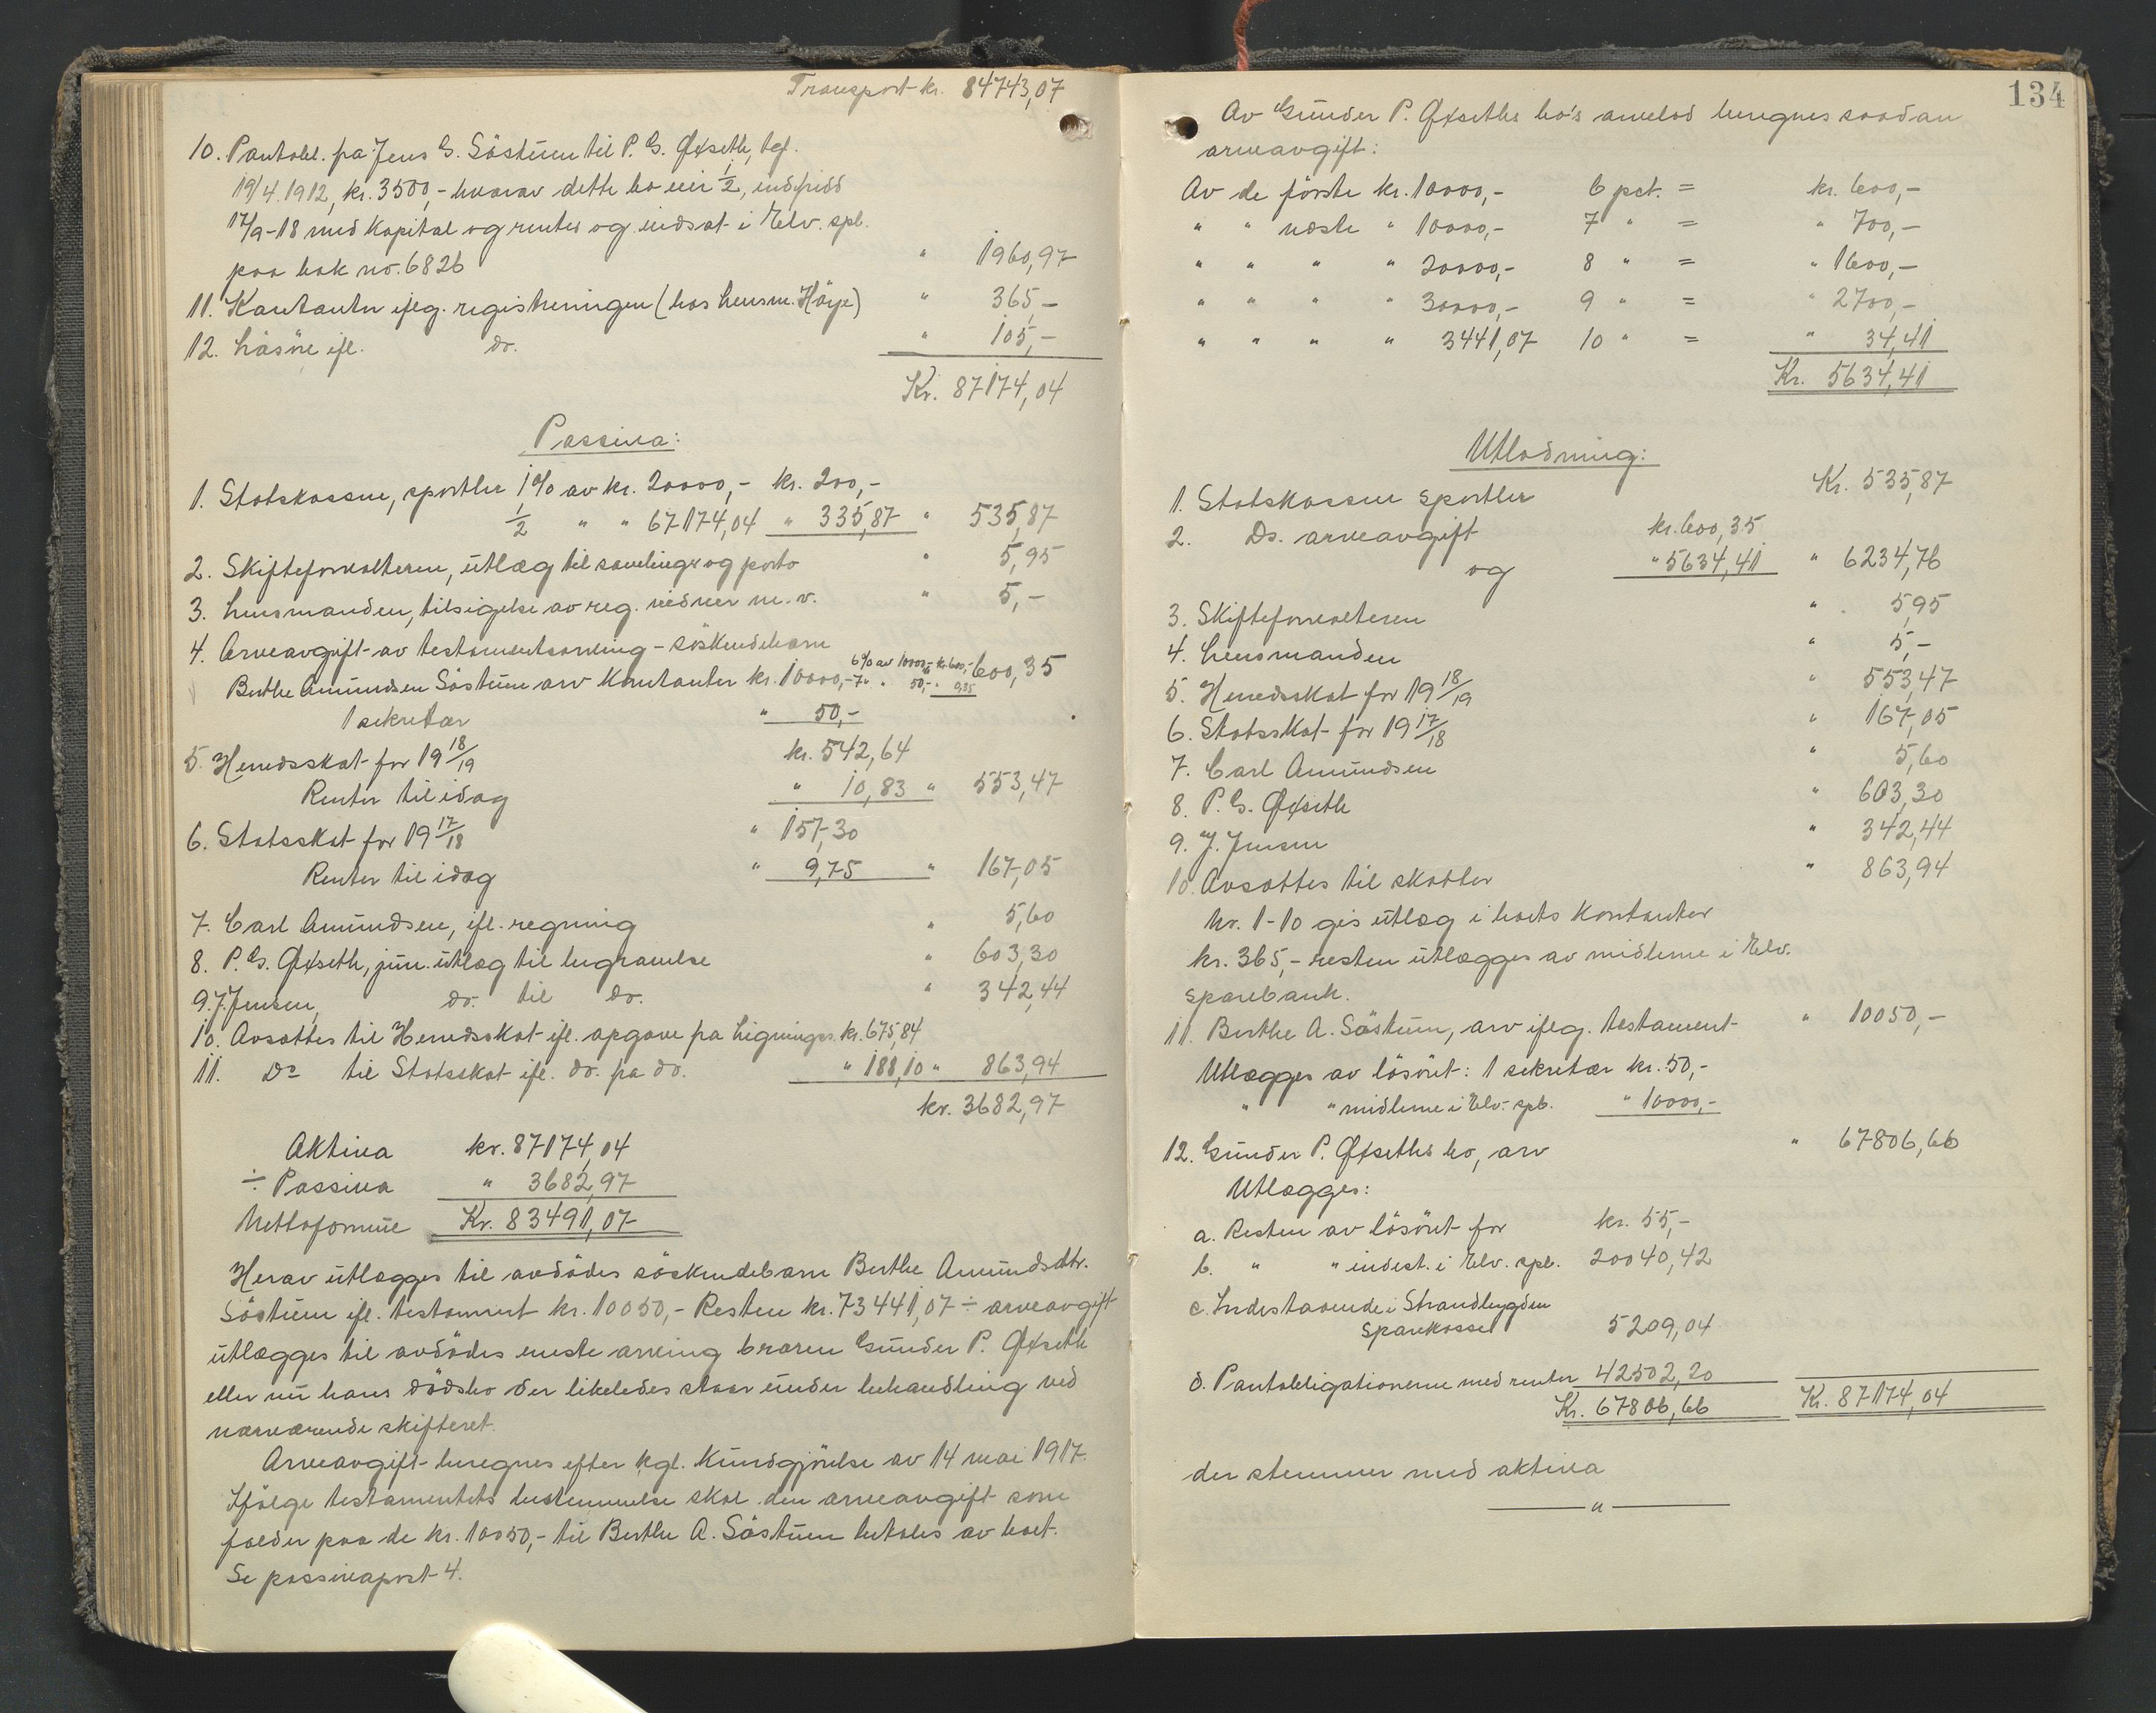 Transport kr. 84743,07
10. Pantobl. fra Jens G. Söstuen til P. G. Øxseth, tgl.
19/4.1912, kr. 3500,- hvorav dette bo eier 1/2, indfridd
17/9-18 med kapital og renter og indsat i Elv. spb.
paa bok no. 6826 " 1960,97
11. Kontanter iflg. registreringen (hos lensm. Höye) " 365,-
12. Lösöre ifl. do. " 105,-
Kr. 87174,04
Passiva:
1. Statskassen, sportler 1% av kr. 20000,- kr. 200,-
1/2 " " 67174,04 " 335,87 " 535,87
2. Skifteforvalteren, utlæg til samlinger og porto " 5,95
3. Lensmanden, tilsigelse av reg. vidner m. v. " 5,-
4. Arveavgift av testamentsarving - söskendebarn
Berthe Amundsen Söstuen arv Kontanter kr. 10000,- 6% av 10000,- kr. 600,- 7 " " 50,- " 0,35 600,35
1 sekretær " 50,-
5. Herredsskat for 19 18/19 kr. 542,64
Renter til idag " 10,83 " 553,47
6. Statsskat for 19 17/18 " 157,30
Renter til idag " 9,75 " 167,05
7. Carl Amundsen, ifl. regning " 5,60
8. P. G. Øxseth, jun. utlæg til begravelse " 603,30
9. J. Jensen, do. til do. " 342,44
10. Avsættes til Herredsskat ifl. opgave fra Ligningss. kr. 675,84
11. Do til Statsskat ifl. do. fra do. " 188,10 " 863,94
kr. 3682,97
Aktiva kr. 87174,04
÷ Passiva " 3682,97
Nettoformue Kr. 83491,07
Herav utlægges til avdödes söskendebarn Berthe Amundsdtr.
Söstuen ifl. testament kr. 10050,- Resten kr. 73441,07 ÷ arveavgift
utlægges til avdödes eneste arving broren Gunder P. Øxseth
eller nu hans dödsbo der likeledes staar under behandling ved
nærværende skifteret.
Arveavgift beregnes efter kgl. Kundgjörelse av 14 mai 1917.
Ifölge testamentets bestemmelse skal den arveavgift som
falder paa de kr. 10050,- til Berthe A. Söstuen betales av boet.
Se passivapost 4.
134
Av Gunder P. Øxseths bo's arvelod beregnes saadan
arveavgift:
Av de förste kr. 10000,- 6 pct. = kr. 600,-
" " næste " 10000,- 7 " = " 700,-
" " " " 20000,- 8 " = " 1600,-
" " " " 30000,- 9 " = " 2700,-
" " " " 3441,07 10 " = " 34,41
Kr. 5634,41
Utlodning:
1. Statskassen sportler Kr. 535,87
2. Do. arveavgift kr. 600,35
og " 5634,41 " 6234,76
3. Skifteforvalteren " 5,95
4. Lensmanden " 5,-
5. Herredsskat for 19 18/19 " 553,47
6. Statsskat for 19 17/18 " 167,05
7. Carl Amundsen " 5,60
8. P. G. Øxseth " 603,30
9. J. Jensen " 342,44
10. Avsættes til skatter " 863,94
Nr. 1-10 gis utlæg i boets kontanter
kr. 365,- resten utlægges av midlerne i Elv.
sparebank.
11. Berthe A. Söstuen, arv iflg. testament " 10050,-
Utlægges av lösöret: 1 sekretær kr. 50,-
" " midlerne i Elv. spb. " 10000,-
12. Gunder P. Øxseths bo, arv " 67806,66
Utlægges:
a. Resten av lösöret for kr. 55,-
b. " " indest. i Elv. spb. 20040,42
c. Indestaaende i Strandbygden
Sparekasse 5209,04
d. Pantobligationerne med renter 42502,20
Kr. 67806,66 Kr. 87174,04
der stemmer med aktiva